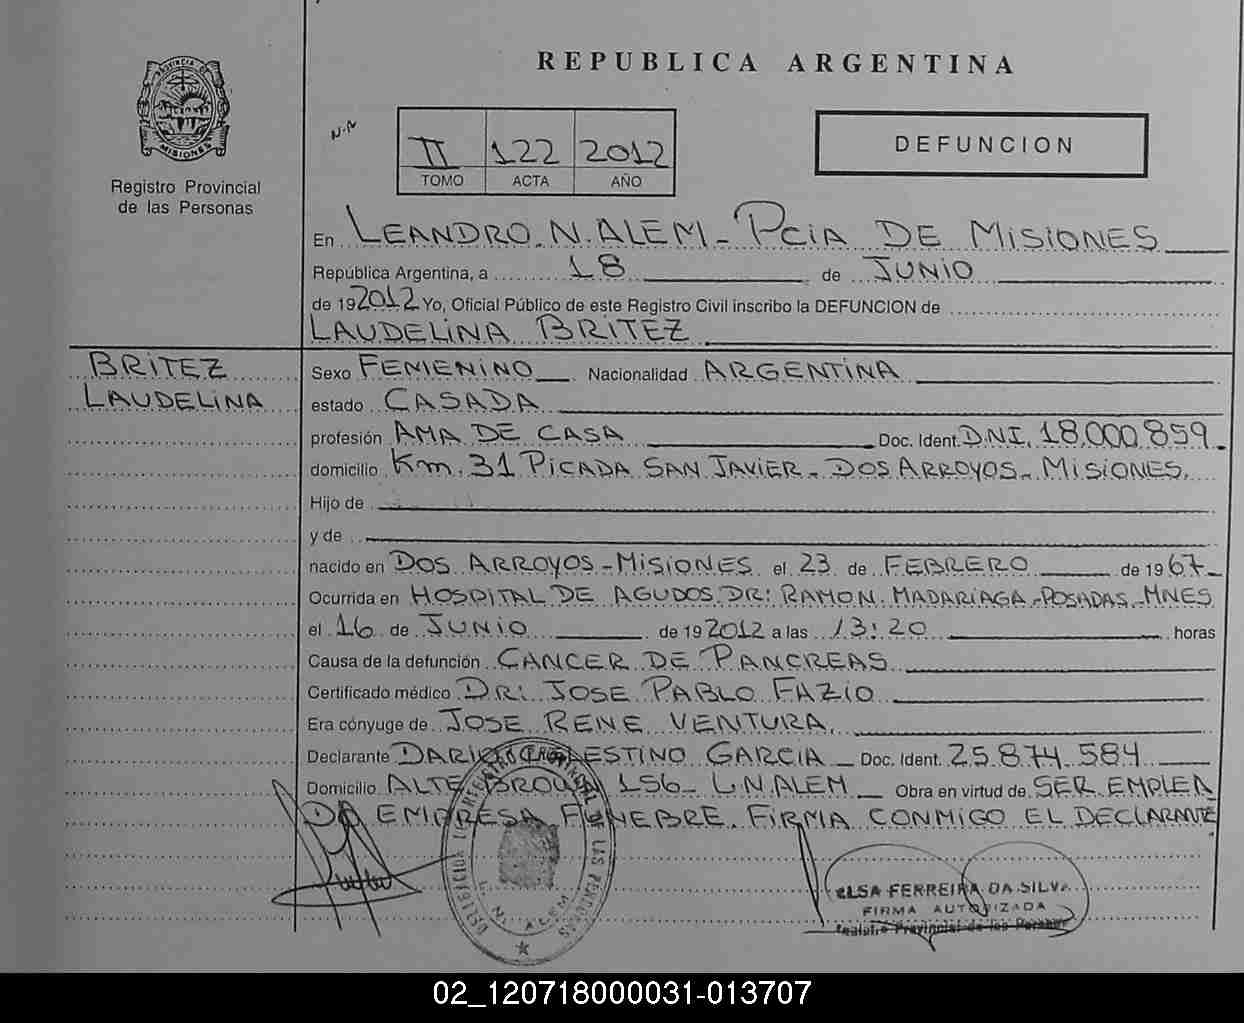 REPUBLICA ARGENTINA
PROVINCIA DE
MISIONES
Registro Provincial
de las Personas
N-N
II 122 2012
TOMO ACTA AÑO
DEFUNCION
En LEANDRO.N.ALEM-PCiA DE MISIONES
República Argentina, a 18 de JUNIO
de 192012 Yo, Oficial Público de este Registro Civil inscribo la DEFUNCION de
LAUDELINA BRITEZ
BRITEZ
LAUDELINA
Sexo FEMENINO Nacionalidad ARGENTINA
estado CASADA
profesión AMA DE CASA Doc. Ident. DNI. 18.000.859.
domicilio Km. 31 PICADA SAN JAVIER - DOS ARROYOS - MISIONES.
Hijo de
y de
nacido en DOS ARROYOS - MISIONES el 23 de FEBRERO de 1967-
Ocurrida en HOSPITAL DE AGUDOS DR: RAMON MADARIAGA-POSADAS-MNES
el 16 de JUNIO de 192012 a las 13:20 horas
Causa de la defunción CANCER DE PANCREAS
Certificado médico DR: JOSE PABLO FAZIO
Era cónyuge de JOSE RENE VENTURA.
Declarante DARIO CELESTINO GARCIA Doc. Ident. 25.874.584
Domicilio ALTE BROWN 156- L.N.ALEM Obra en virtud de SER EMPLEA
DO EMPRESA FUNEBRE. FIRMA CONMIGO EL DECLARANTE
DELEGACION DE REGISTRO PROVINCIAL DE LAS PERSONAS
L. N. ALEM
ELSA FERREIRA DA SILVA
FIRMA AUTORIZADA
Registro Provincial de las Personas
02_120718000031-013707